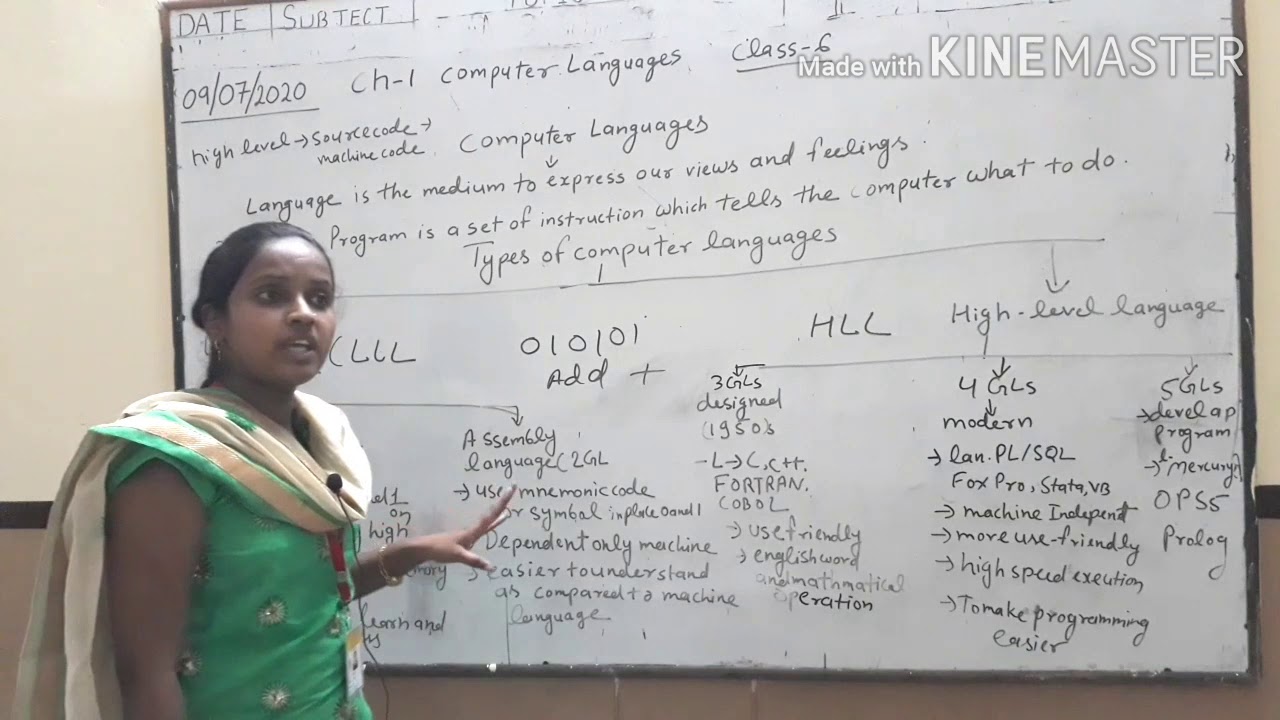 DATE SUBTECT
Made with KINEMASTER
09/07/2020 Ch-1 Computer Languages Class-6
high level → sourcecode →
machine code
Computer Languages
Language is the medium to express our views and feelings.
Program is a set of instruction which tells the computer what to do.
Types of computer languages
LLL 010101 HLL High-level language
Add +
Assembly
language (2GL
→ use mnemonic code
or symbal inplace 0 and 1
Dependent only machine
→ easier to understand
as compared to machine
language
and 1
on
high
learn and
3GLs
designed
(1950)s
-L → C, C++.
FORTRAN.
COBOL
→ use friendly
→ english word
and mathmatical
operation
4GLs
modern
→ lan. PL/SQL
Fox Pro, Stata, VB
→ machine Independent
→ more use-friendly
→ high speed exeution
→ To make programming
easier
5GLs
→ develap
program
→ Mercury
OPS5
Prolog